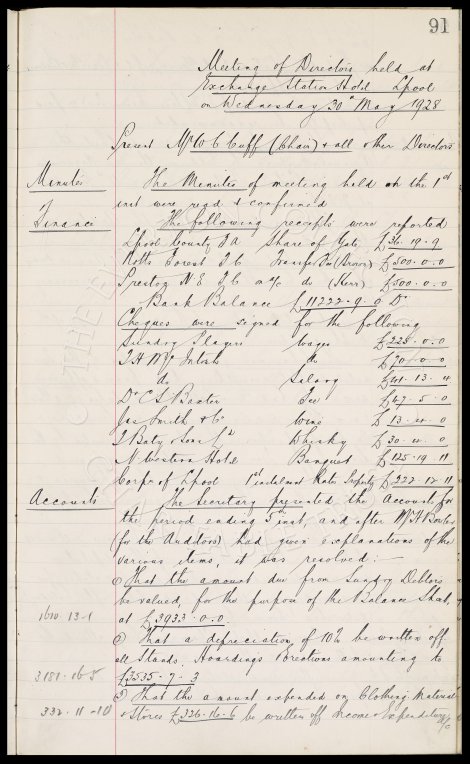 91
Meeting of Directors held at
Exchange Station Hotel Lpool
on Wednesday 30th May 1928
Present Mr W C Cuff (Chair) & all other Directors
Minutes The Minutes of meeting held on the 1st
inst were read & confirmed
Finance The following receipts were reported
Lpool County F A Share of Gate £36-19-9
Notts Forest F C Transfer Fee £500-0-0
Preston N E F C a/c do (Kerr) £500-0-0
Bank Balance £11222-9-0 Dr
Cheques were signed for the following
Sundry Players Wages £228-0-0
T H McIntosh do £70-0-0
do Salary £41-13-4
Dr C S Baxter Fee £47-5-0
Jas Smith & Co Wine £13-4-0
J Baty & Sons Ld Whisky £30-4-0
N Western Hotel Banquet £125-19-11
Corpn of Lpool 1st instalment Rates £222-12-11
Accounts The Secretary presented the Accounts for
the period ending 5th inst, and after Mr H
(for the Auditors) had given explanations of the
various items, it was resolved.—
(1) That the amount due from Sundry Debtors
be valued, for the purpose of the Balance Sheet,
1610-13-1 at £3933-0-0
(2) That a depreciation of 10% be written off
all Stands, Hoardings Erections amounting to
3181-16-5 £3535-7-3
(3) That the amount expended on Clothing, Material
332-11-10 & Stores £326-16-6 be written off Income & Expenditure a/c